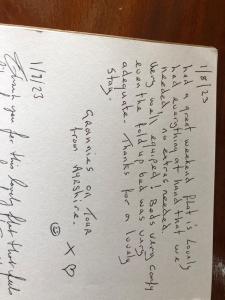 1/8/23
had a great weekend flat is lovely
had everything at hand that we
needed no extras needed.
Very well equiped. Beds very comfy
even the fold up bed was very
adequate. Thanks for a lovely
stay.
Grannies on Tour
from Ayrshire.
☺ X ♡
1/9/23
Thank you for the lovely flat that